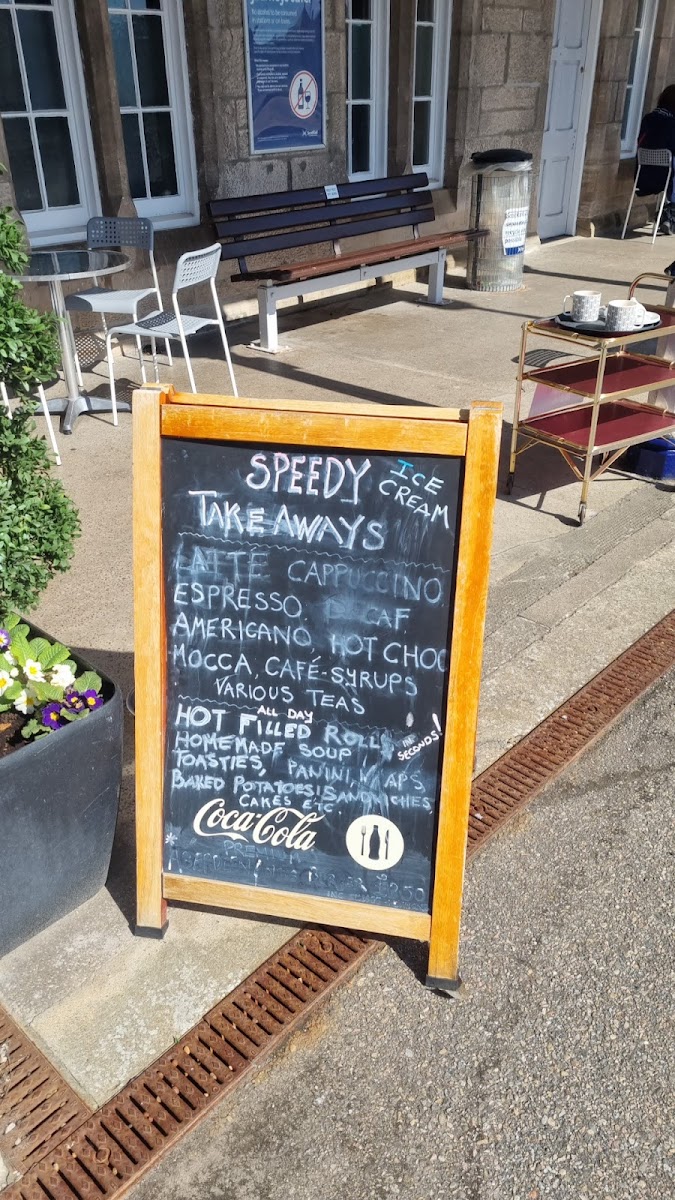 SPEEDY ICE CREAM
TAKE AWAYS
LATTE CAPPUCCINO
ESPRESSO, DECAF
AMERICANO, HOT CHOC
MOCCA, CAFÉ-SYRUPS
VARIOUS TEAS
ALL DAY
HOT FILLED ROLLS
IN SECONDS!
HOMEMADE SOUP
TOASTIES, PANINI, WRAPS
BAKED POTATOES SANDWICHES,
CAKES ETC
Coca-Cola
PREMIUM